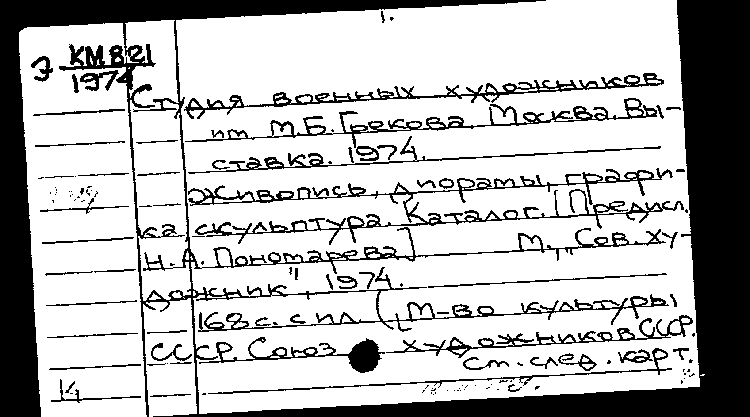 1.
Э КМ 821
1974
Студия военных художников
им. М.Б. Грекова. Москва. Вы-
ставка. 1974.
Живопись, диорамы, графи-
ка, скульптура. Каталог. [Предисл.
Н.А. Пономарева] М., „Сов. ху-
дожник", 1974.
168 с. с ил. ([М-во культуры
СССР. Союз художников СССР.
См. след. карт.
14